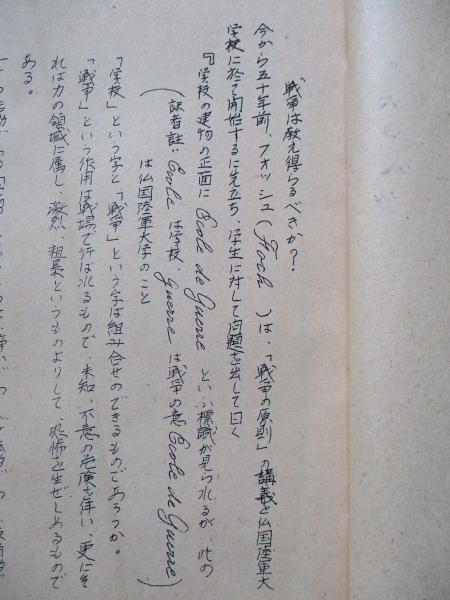 戦争は教え得らるべきか?
今から五十年前、フォッシュ(Foch)は、「戦争の原則」の講義を仏国陸軍大
学校に於て開始するに先立ち、学生に対して問題を出して曰く
『学校の建物の正面に Ecole de Guerre という標識が見られるが、此の
(訳者註:Ecole は学校、Guerre は戦争の意 Ecole de Guerre
は仏国陸軍大学のこと)
「学校」という字と「戦争」という字は組み合せのできるものであろうか。
「戦争」という作用は戦場で行はれるもので、未知、不意の危険を伴い、更にそ
れは力の領域に属し、激烈、粗暴というものよりして、恐怖を生ぜしめるもので
ある。